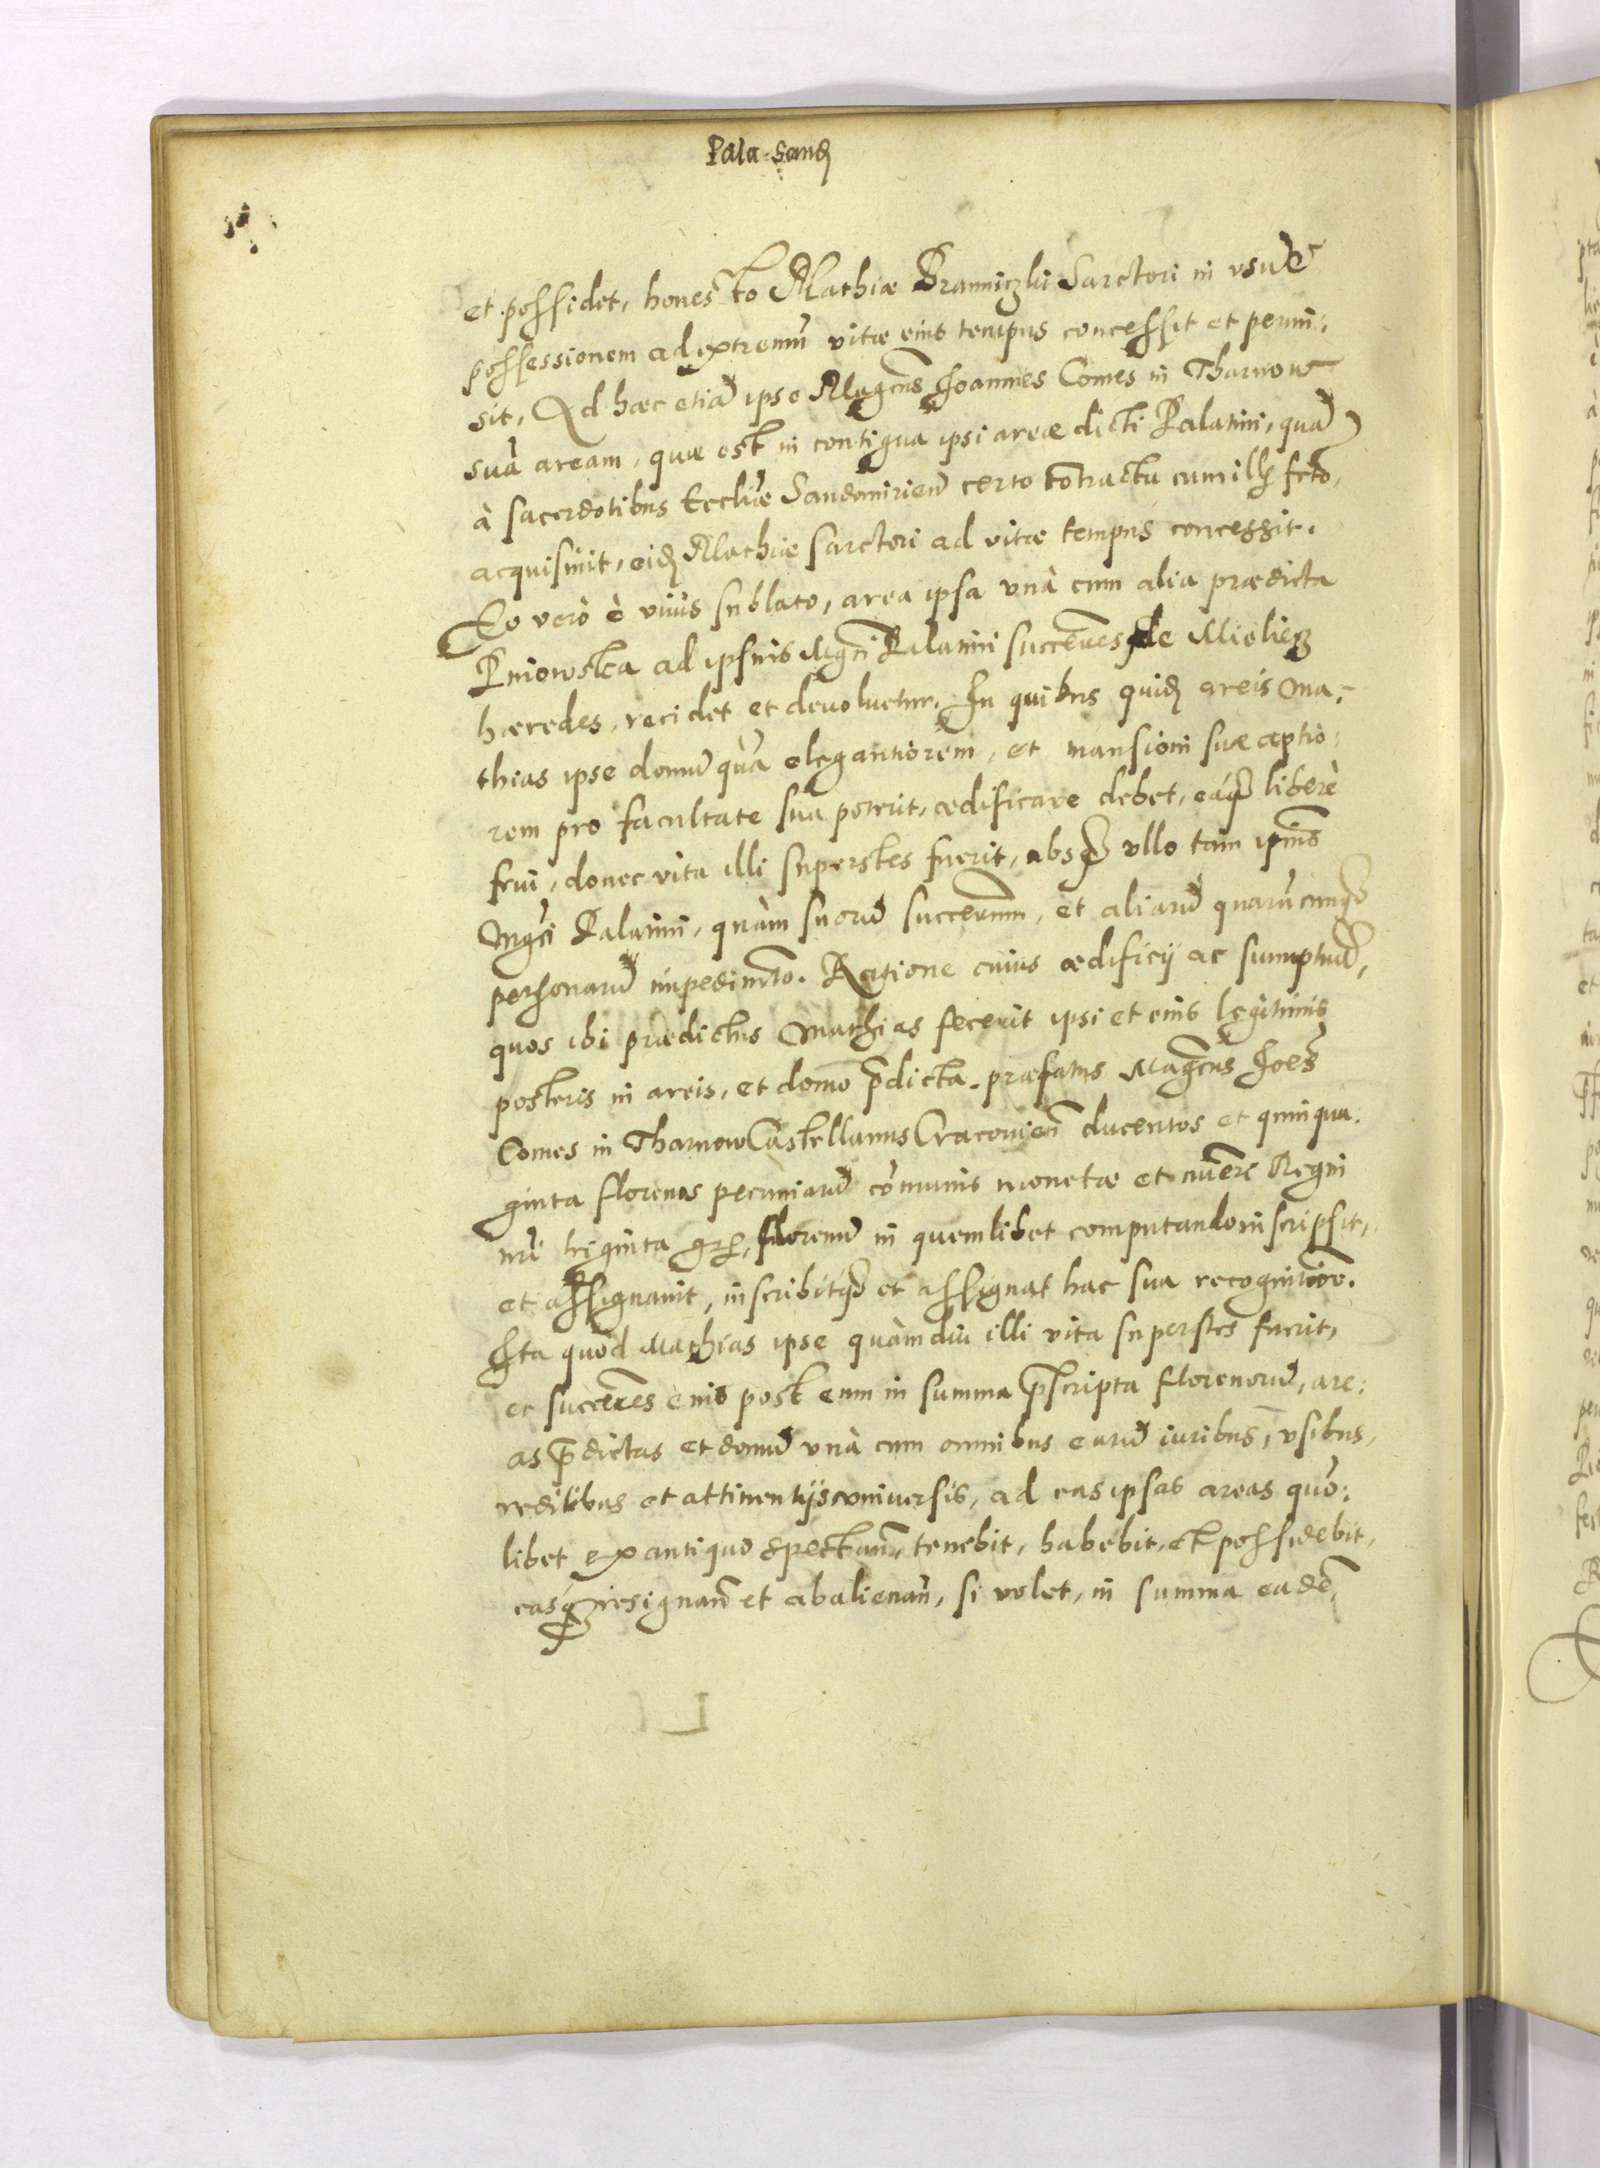 Pala: Sand
et possidet, honesto Mathiæ Branniczki Sarctori in usũ et
possessionem ad extremũ vitæ eius tempus concessit et permi:
sit, Ad hæc etiã ipse Magcus Joannes Comes in Tharnow
suã aream, quæ est in contigua ipsi areæ dicti Palatini, quã
à sacerdotibus Eccliæ Sandomirieñ certo cõtractu cum illis fcto,
acquisiuit, eid Mathiæ sarctori ad vitæ tempus concessit.
Eo verò è viuis sublato, area ipsa unà cum alia prædicta
Pniowska ad ipsius Mgci Palatini successres de Mieliecz
hæredes, recidet et deuoluetur. In quibus quid areis Ma:
thias ipse domũ quã elegantiorem, et mansioni suæ aptio:
rem pro facultate sua poterit, ædificare debet, eáq libere
frui, donec vita illi superstes fuerit, absq ullo tam ipsius
Mgci Palatini, quàm suorũ succerum, et aliarũ quarũcunq
personarũ impedimto. Ratione cuius ædificij ac sumptuũ,
quos ibi prædictus Mathias fecerit ipsi et eius legitimis
posteris in areis, et domo pdicta, præfatus Magcus Joes
Comes in Tharnow Castellanus Cracouieñ ducentos et quinqua:
ginta florenos pecuniarũ cõmunis monetæ et nũeri Regni
nri triginta gr, florenũ in quemlibet computando inscripsit,
et assignauit, inscribitq et assignat hac sua recognitioe.
Ita quòd Mathias ipse quàmdiu illi vita superstes fuerit,
et succeres eius post eum in summa pscripta florenorũ, are:
as pdictas et domũ unà cum omnibus earũ iuribus, usibus,
reditibus et attinentijs vniuersis, ad eas ipsas areas quo:
libet ex antiquo spectañ, tenebit, habebit, et possidebit,
easq resignañ et abalienañ, si volet, in summa eadẽ,